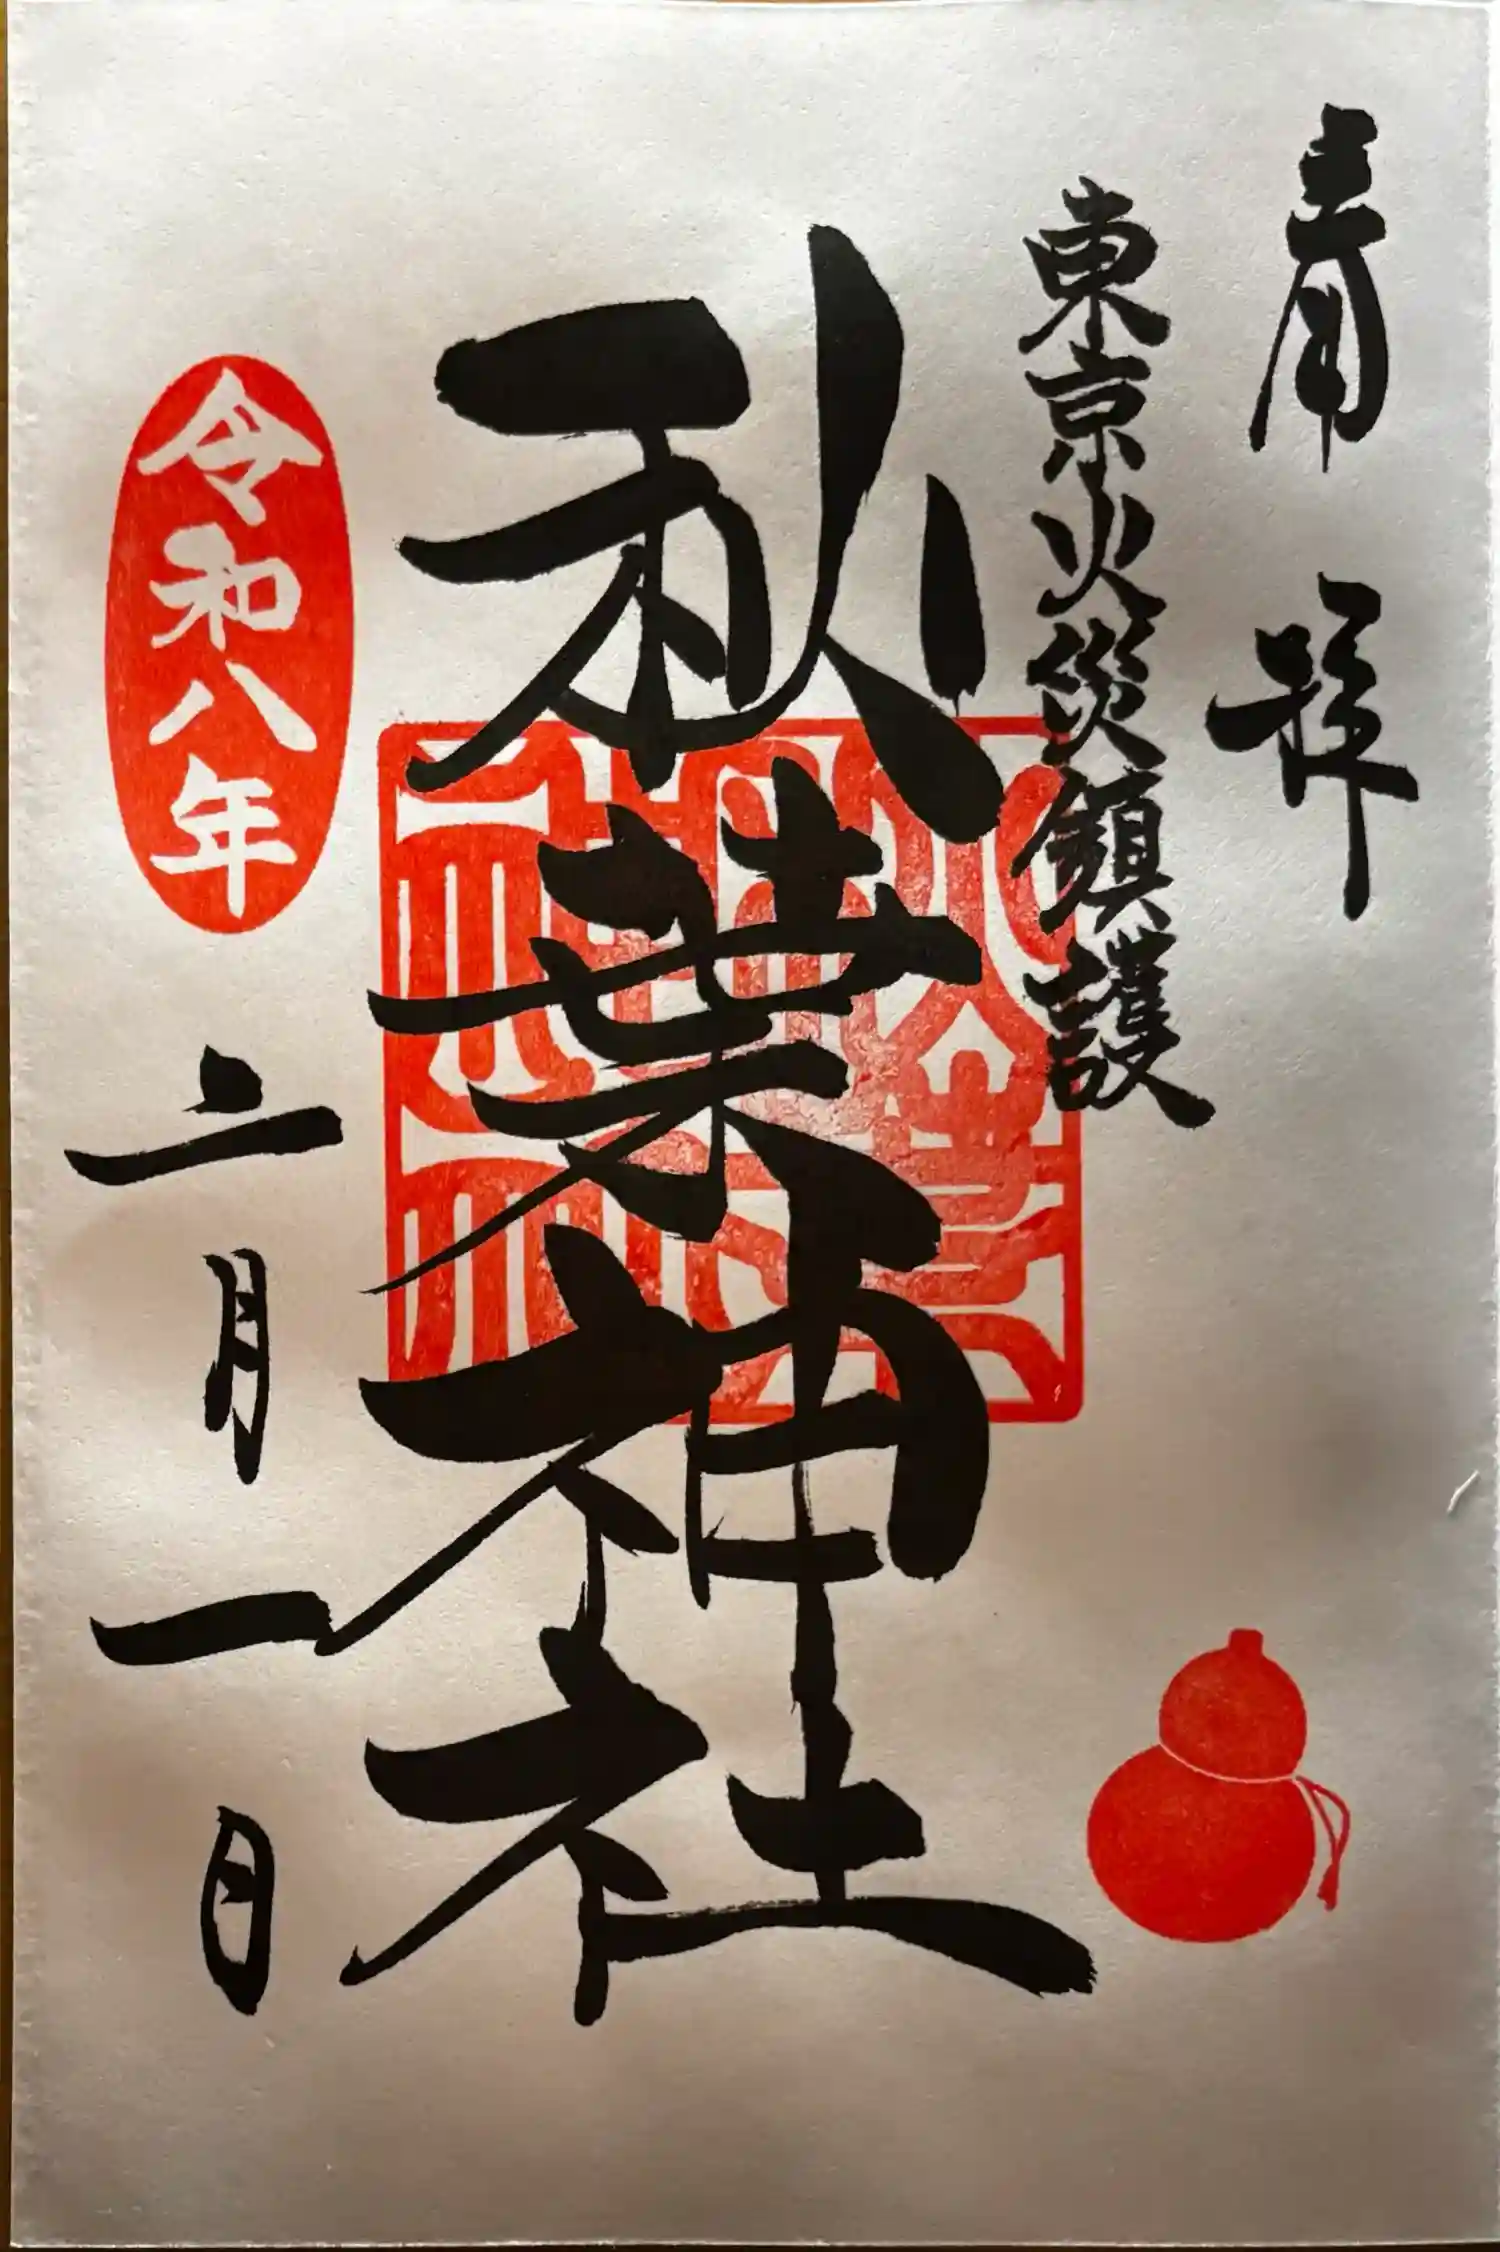 奉拝
東京火災鎮護
秋葉神社
秋葉神社
令和八年
二月一日